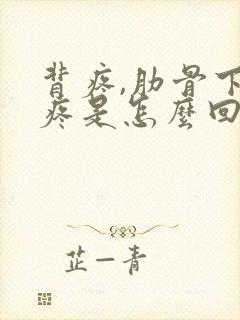 背疼,肋骨下
疼是怎麽回
芷一青